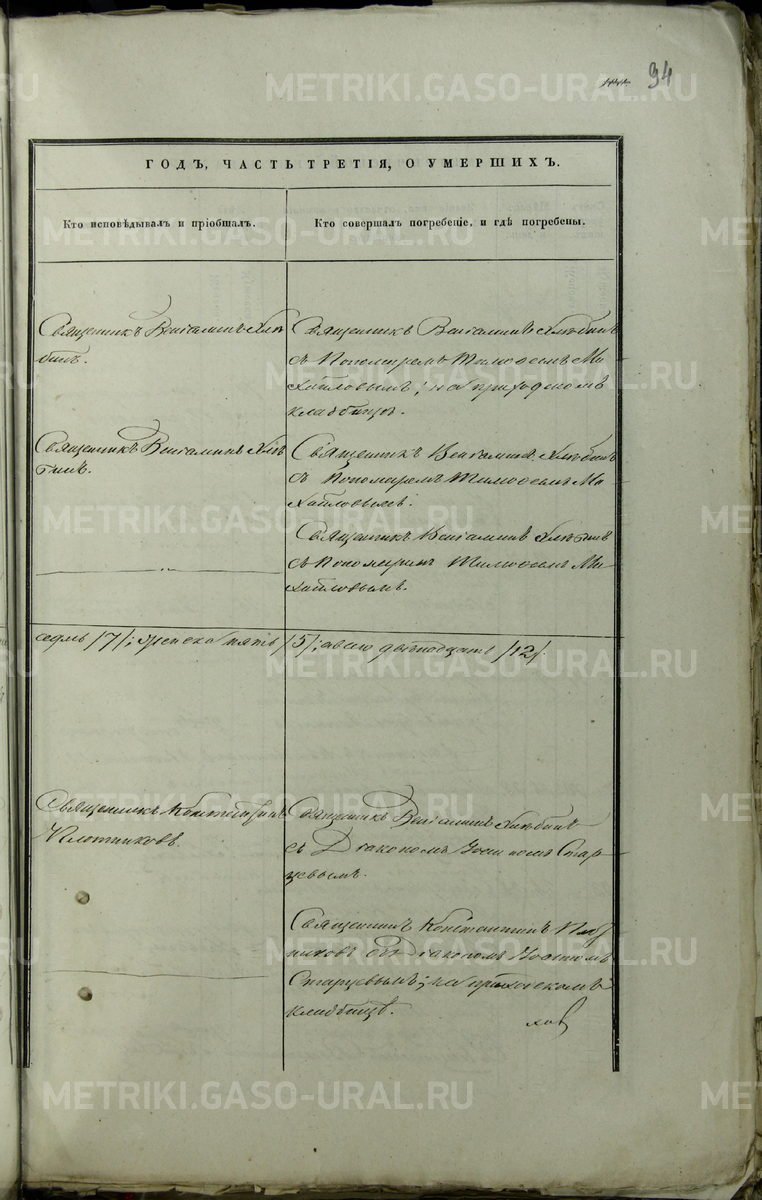 94
ГОДЪ, ЧАСТЬ ТРЕТІЯ, О УМЕРШИХЪ.
Кто исповѣдывалъ и пріобщалъ.
Кто совершалъ погребеніе, и гдѣ погребены.
Священникъ Веніаминъ Хлѣ-
бинъ.
Священникъ Веніаминъ Хлѣбинъ
съ Пономаремъ Тимоѳеемъ Ми-
хайловымъ; на приходскомъ
кладбищѣ.
Священникъ Веніаминъ Хлѣ-
бинъ.
Священникъ Веніаминъ Хлѣбинъ
съ Пономаремъ Тимоѳеемъ Ми-
хайловымъ.
Священникъ Веніаминъ Хлѣбинъ
съ Пономаремъ Тимоѳеемъ Ми-
хайловымъ.
седмь /7/; женска пять /5/; а всего двѣнадцать /12/.
Священникъ Константинъ
Плотниковъ.
Священникъ Веніаминъ Хлѣбинъ
съ Діакономъ Стар-
цевымъ.
Священникъ Константинъ Плот-
никовъ съ Діакономъ
Старцевымъ; на приходскомъ
кладбищѣ.
METRIKI.GASO-URAL.RU